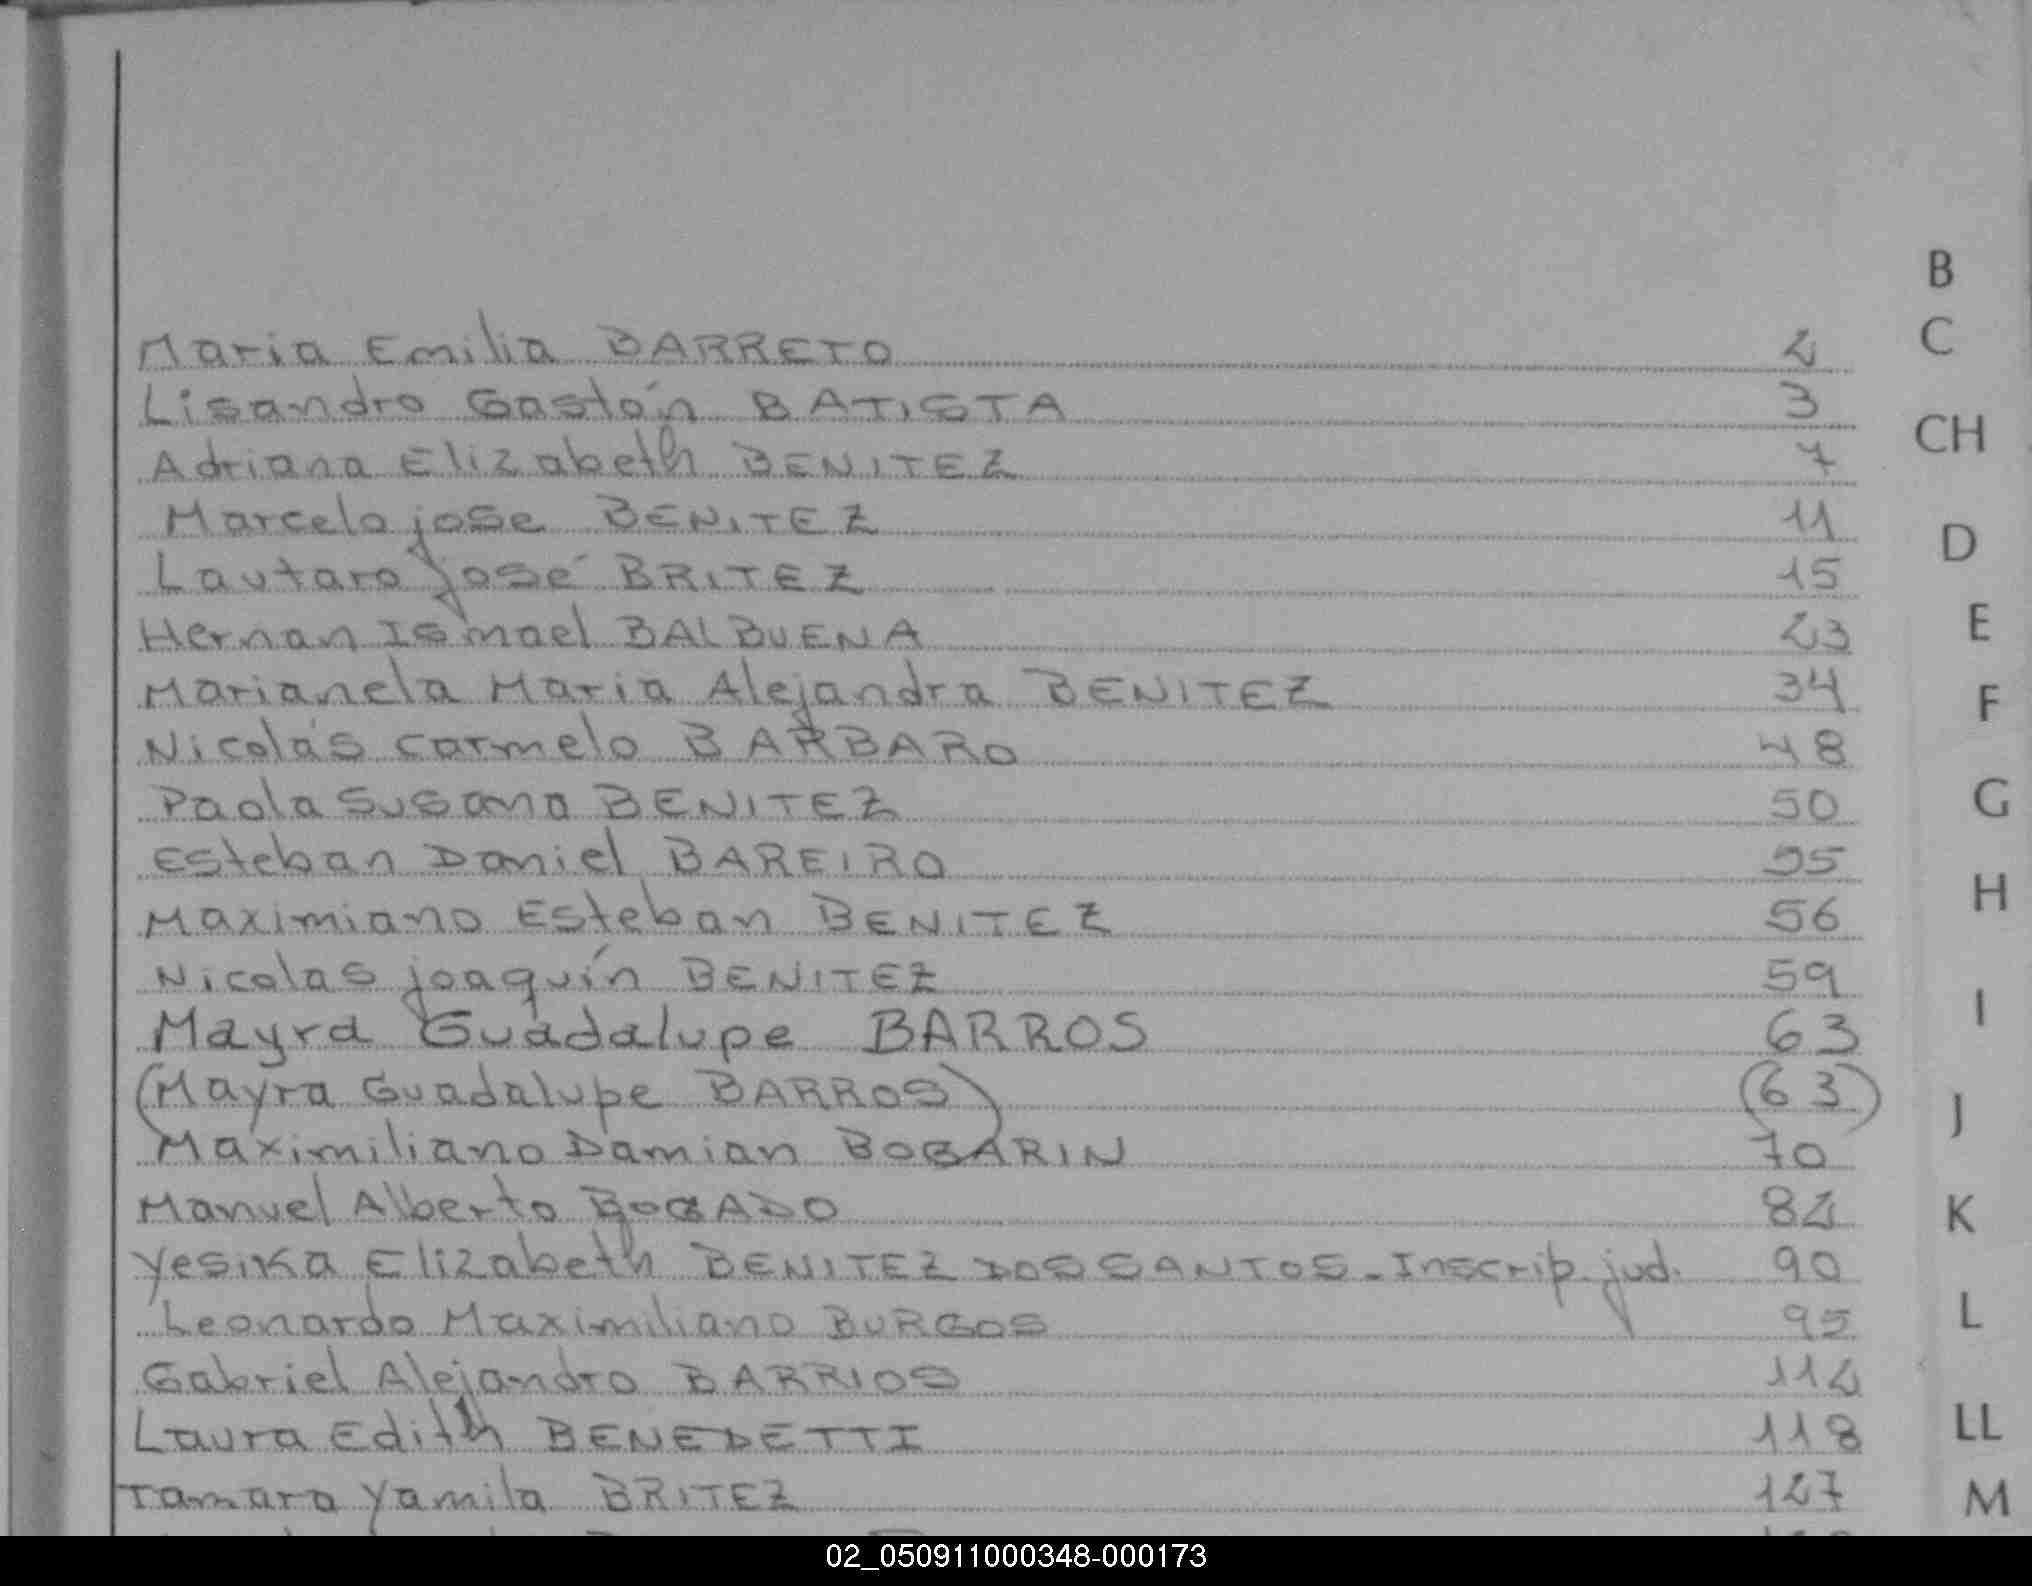 B
Maria Emilia BARRETO 2
C
Lisandro Gastón BATISTA 3
CH
Adriana Elizabeth BENITEZ 7
Marcelo jose BENITEZ 11
D
Lautaro José BRITEZ 15
Hernan Ismael BALBUENA 23
E
Marianela Maria Alejandra BENITEZ 34
F
Nicolás Carmelo BARBARO 48
Paola Susana BENITEZ 50
G
Esteban Daniel BAREIRO 55
H
Maximiano Esteban BENITEZ 56
Nicolas joaquín BENITEZ 59
I
Mayra Guadalupe BARROS 63
(Mayra Guadalupe BARROS) (63)
J
Maximiliano Damian BOGARIN 70
Manuel Alberto BOGADO 82
K
Yesika Elizabeth BENITEZ DOS SANTOS - Inscrip. jud. 90
Leonardo Maximiliano BURGOS 95
L
Gabriel Alejandro BARRIOS 112
Laura Edith BENEDETTI 118
LL
Tamara Yamila BRITEZ 127
M
02_050911000348-000173